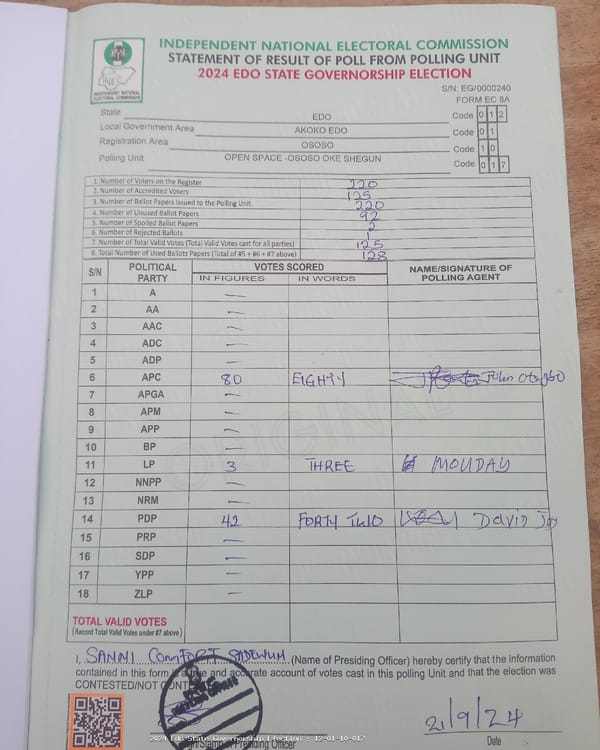 INDEPENDENT NATIONAL ELECTORAL COMMISSION
STATEMENT OF RESULT OF POLL FROM POLLING UNIT
2024 EDO STATE GOVERNORSHIP ELECTION
INDEPENDENT NATIONAL
ELECTORAL COMMISSION
S/N: EG/0000240
FORM EC 8A
State EDO Code 0 1 2
Local Government Area AKOKO EDO Code 0 1
Registration Area OSOSO Code 1 0
Polling Unit OPEN SPACE -OSOSO OKE SHEGUN Code 0 1 7
1. Number of Voters on the Register 220
2. Number of Accredited Voters 125
3. Number of Ballot Papers Issued to the Polling Unit 220
4. Number of Unused Ballot Papers 92
5. Number of Spoiled Ballot Papers 2
6. Number of Rejected Ballots 1
7. Number of Total Valid Votes (Total Valid Votes cast for all parties) 125
8. Total Number of Used Ballots Papers (Total of #5 + #6 + #7 above) 128
S/N POLITICAL PARTY VOTES SCORED NAME/SIGNATURE OF POLLING AGENT
IN FIGURES IN WORDS
1 A —
2 AA —
3 AAC —
4 ADC —
5 ADP —
6 APC 80 EIGHTY John
7 APGA —
8 APM —
9 APP —
10 BP —
11 LP 3 THREE MOUDAY
12 NNPP —
13 NRM —
14 PDP 42 FORTY TWO David
15 PRP —
16 SDP —
17 YPP —
18 ZLP —
TOTAL VALID VOTES
(Record Total Valid Votes under #7 above)
ORIGINAL
I, SANNI COMFORT (Name of Presiding Officer) hereby certify that the information
contained in this form is a true and accurate account of votes cast in this polling Unit and that the election was
CONTESTED/NOT CONT
21/9/24
Date
2024 Edo State Governorship Election : 12-01-10-017
Presiding Officer